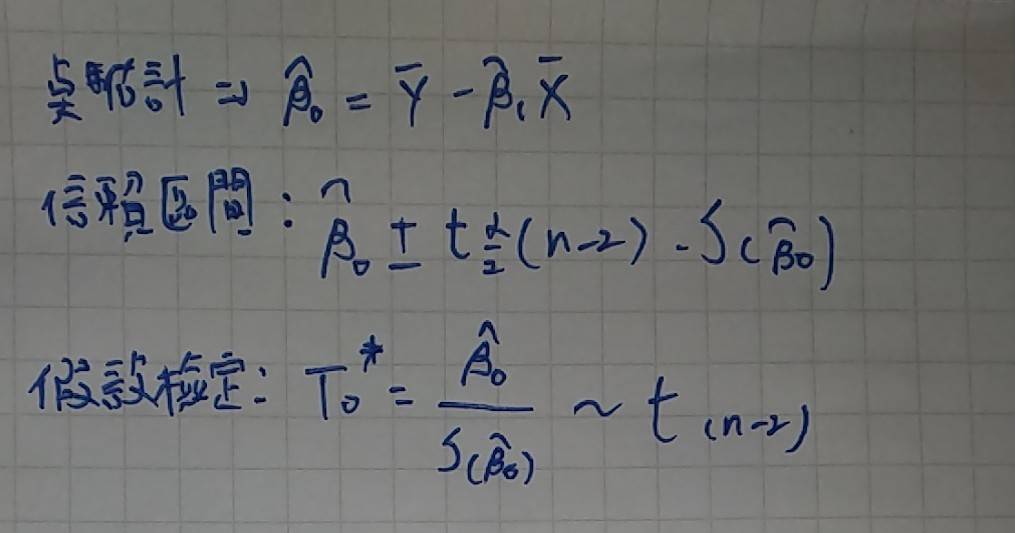 点估計 ⇒ β̂₀ = Ȳ - β̂₁X̄
信賴區間: β̂₀ ± t α/2 (n-2) - S(β̂₀)
假設檢定: T₀* = β̂₀ / S(β̂₀) ~ t (n-2)